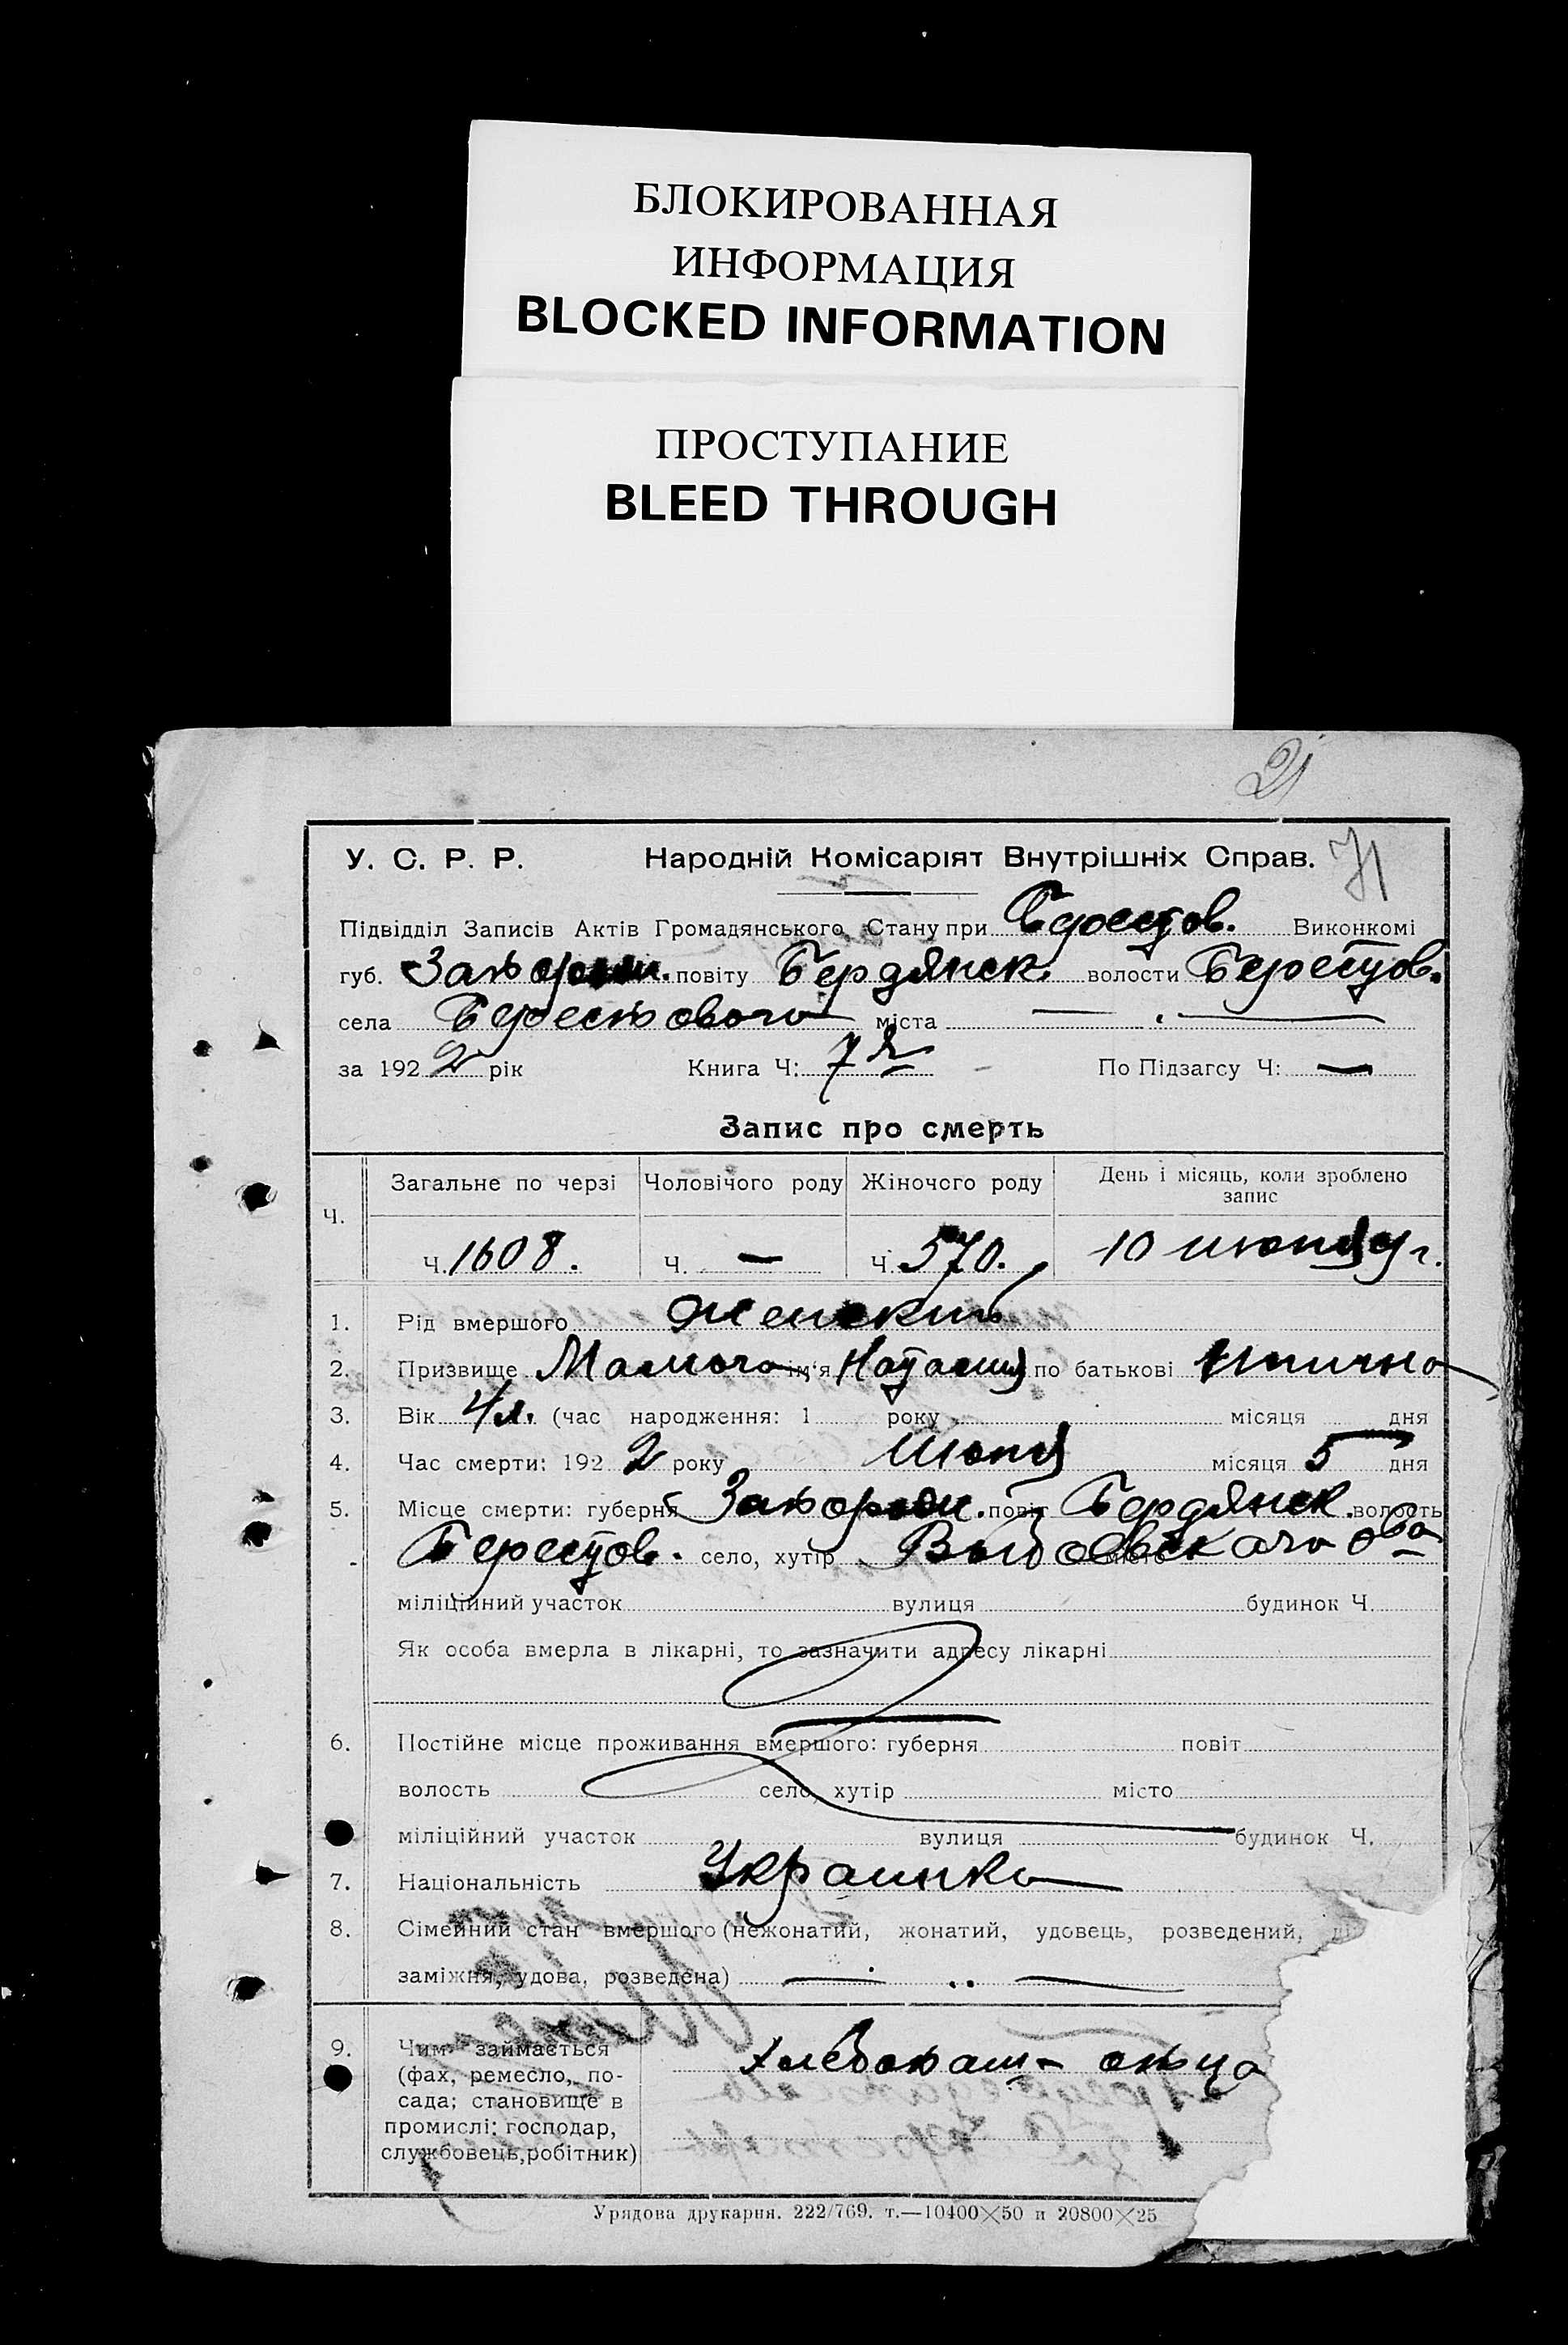 БЛОКИРОВАННАЯ
ИНФОРМАЦИЯ
BLOCKED INFORMATION
ПРОСТУПАНИЕ
BLEED THROUGH
21
71
У. С. Р. Р. Народній Комісаріят Внутрішніх Справ.
Підвідділ Записів Актів Громадянського Стану при Берестов. Виконкомі
губ. Запорож. повіту Бердянск. волости Берестов.
села Берестового міста —
за 1922 рік Книга Ч: 7я По Підзагсу Ч: —
Запис про смерть
Ч. Загальне по черзі Чоловічого роду Жіночого роду День і місяць, коли зроблено запис
Ч. 1608. Ч. — Ч. 570. 10 июня
1. Рід вмершого Женский
2. Призвище ім'я Наталия по батькові
3. Вік 4 л. (час народження: 1 року місяця дня
4. Час смерти: 1922 року Июня місяця 5 дня
5. Місце смерти: губерня Запорож. повіт Бердянск. волость
Берестов. село, хутір місто
міліційний участок вулиця будинок Ч.
Як особа вмерла в лікарні, то зазначити адресу лікарні
6. Постійне місце проживання вмершого: губерня повіт
волость село, хутір місто
міліційний участок вулиця будинок Ч.
7. Національність Украинка
8. Сімейний стан вмершого (нежонатий, жонатий, удовець, розведений,
заміжня, удова, розведена) —
9. Чим займається
(фах, ремесло, по-
сада; становище в
промислі: господар,
службовець, робітник)
Хлебопаш. отца
Урядова друкарня. 222/769. т.—10400×50 и 20800×25